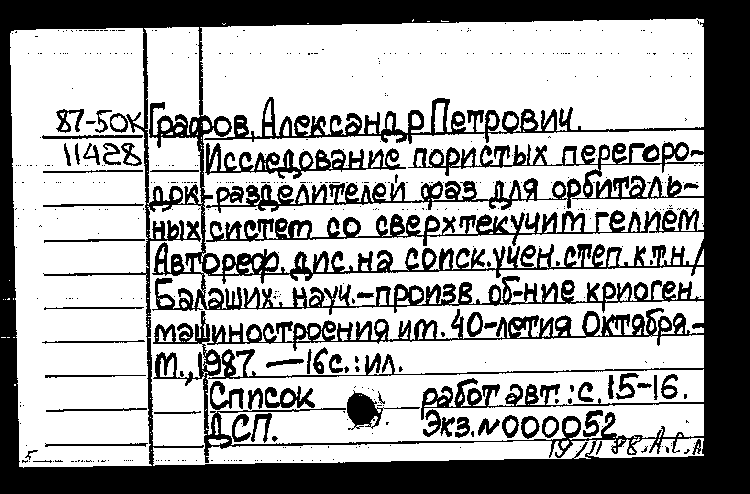 87-50К Графов, Александр Петрович.
11428 Исследование пористых перегоро-
док-разделителей фаз для орбиталь-
ных систем со сверхтекучим гелием.
Автореф. дис. на соиск. учен. степ. к.т.н./
Балаших. науч.-произв. об-ние криоген.
машиностроения им. 40-летия Октября.-
М., 1987. — 16 с. : ил.
Список работ авт. : с. 15-16.
ДСП. Экз. № 000052
5 19/II 88. А.С.